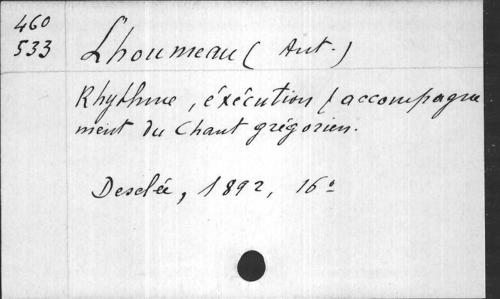 460
533
Lhoumeau ( Ant. )
Rhythme, éxécution / accompagne
ment du Chant grégorien.
Desclée, 1892, 16º